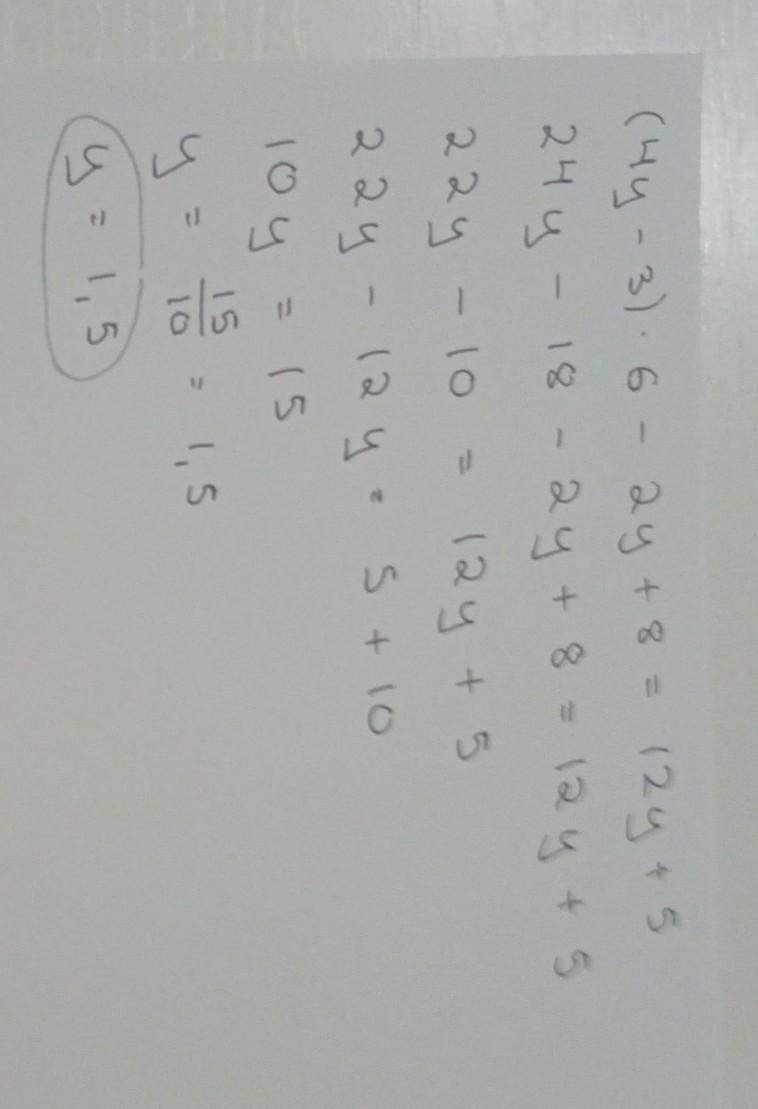 (4y - 3) · 6 - 2y + 8 = 12y + 5
24y - 18 - 2y + 8 = 12y + 5
22y - 10 = 12y + 5
22y - 12y = 5 + 10
10y = 15
y = 15/10 = 1,5
y = 1,5